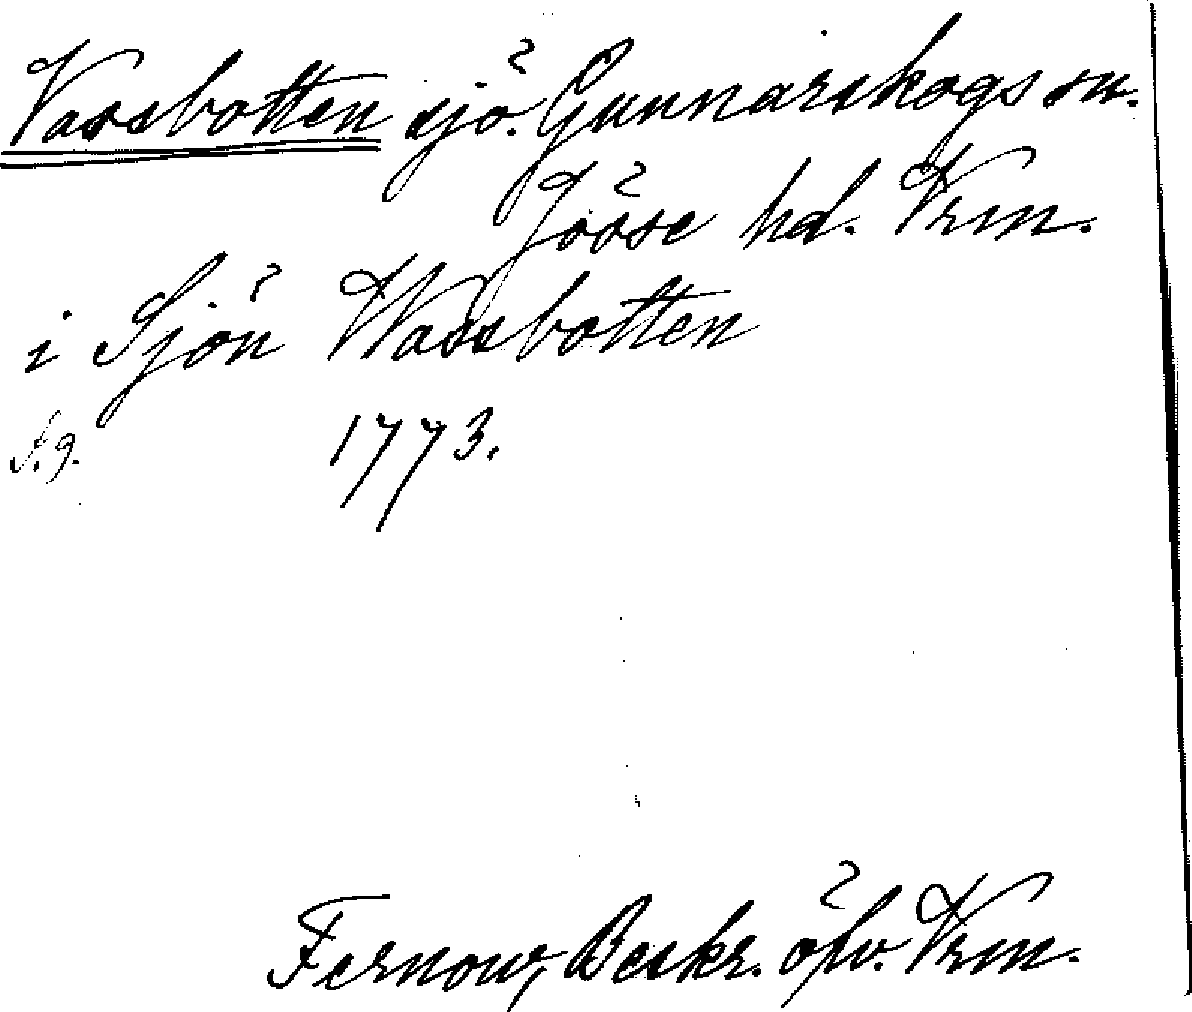 Vassbotten sjö. Gunnarskogs sn.
Jösse hd. Vrm.
i Sjön Wassbotten
1773.
Fernow, Beskr. öfv. Vrm.